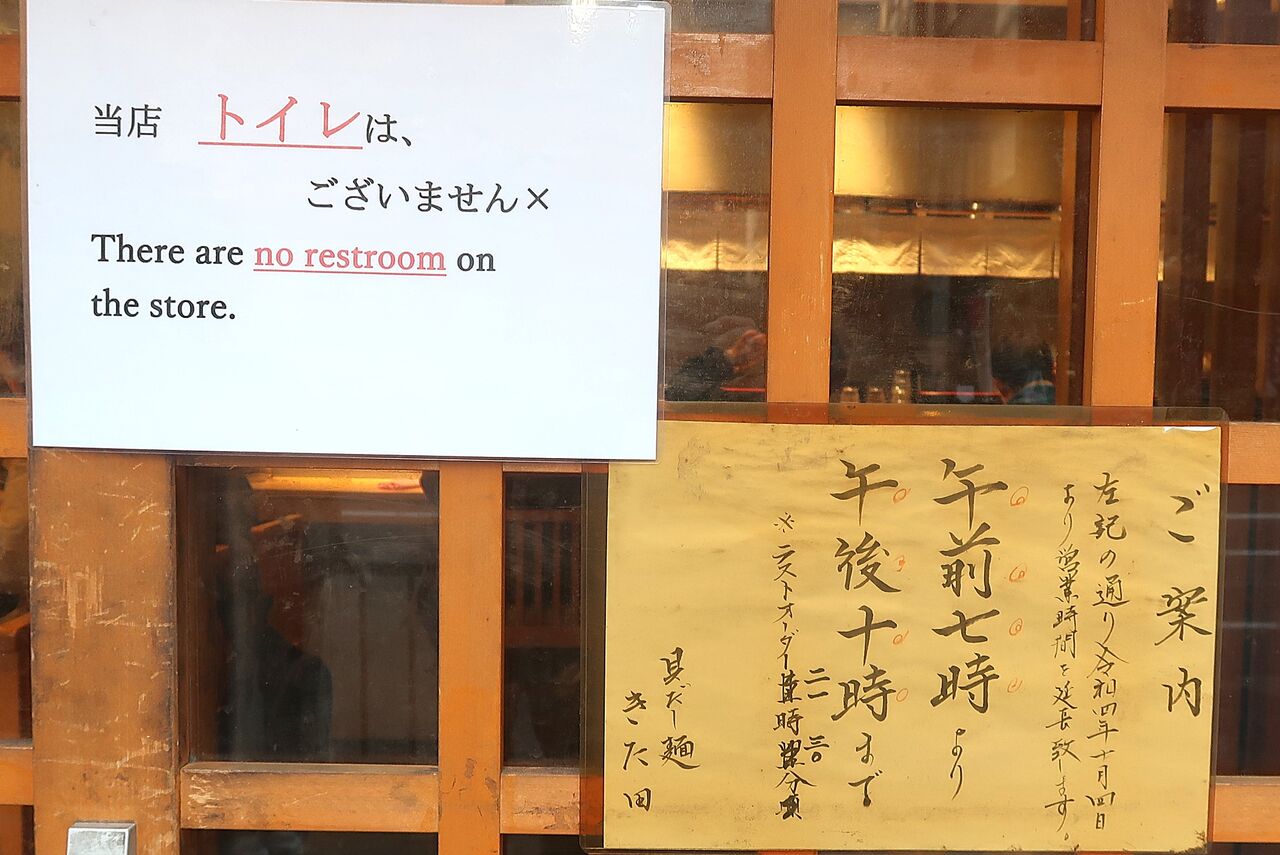 当店 トイレは、
ございません×
There are no restroom on
the store.
ご案内
左記の通り令和四年十月四日
より営業時間を延長致します。
午前七時より
午後十時まで
※ラストオーダー二一時三〇分
貝だし麺
きた田